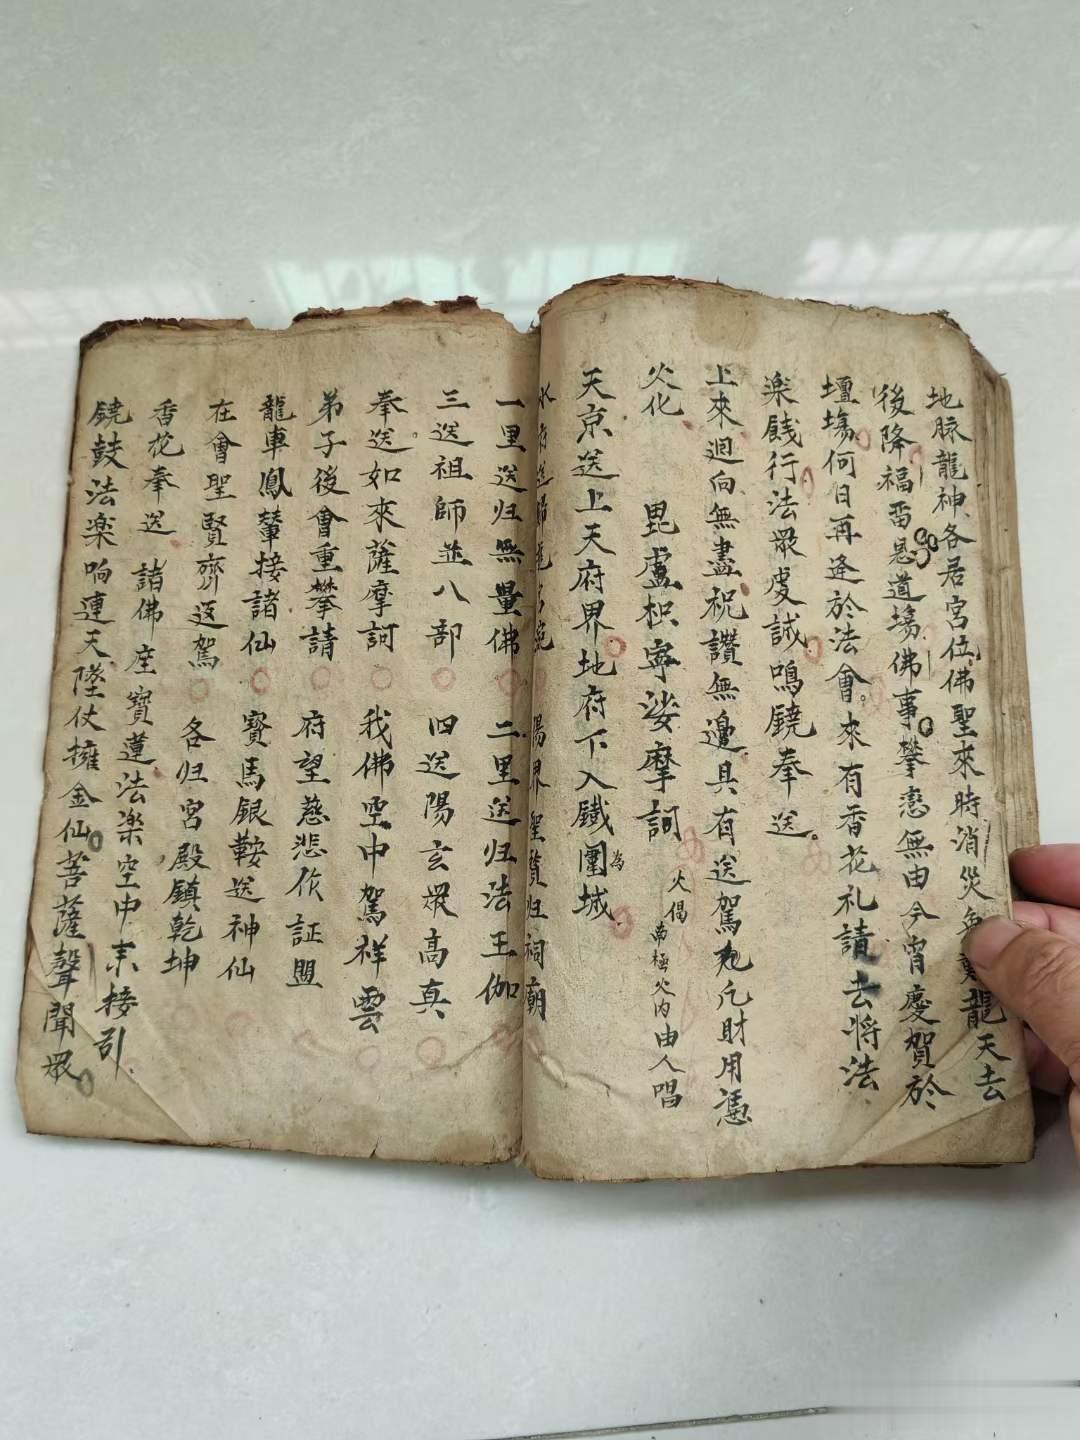 地脉龍神各居宮位佛聖來時消災龍天去
後降福留恩道場佛事攀恋無由今宵慶賀於
壇場何日再逢於法會來有香花礼請去将法
楽餞行法眾虔誠鳴鐃奉送
上來迴向無盡祝讚無邉具有送駕凡財用憑
火化 毘盧枳寧娑摩訶
火偈 南極火內由人唱
天京送上天府界地府下入鐵圍城
為
水府送歸龍宮宛 陽界聖賢归祠廟
一里送归無量佛 二里送归法王伽
三送祖師並八部 四送陽玄眾高真
奉送如來薩摩訶 我佛空中駕祥雲
弟子後會重攀請 府望慈悲作証盟
龍車鳳輦接諸仙 寶馬銀鞍送神仙
在會聖賢齊返駕 各归宮殿鎮乾坤
香花奉送 諸佛座寶蓮法楽空中来接引
鐃鼓法楽响連天墜仗擁金仙菩薩聲聞眾